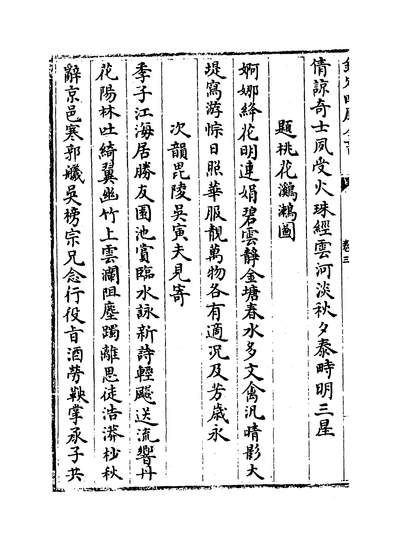 欽定四庫全書
卷三
倩諒奇士夙受火珠經雲河淡秋夕泰畤明三星
題桃花鸂鶒圖
婀娜絳花明連娟碧雲靜金塘春水多文禽汎晴影大
堤窩游悰日照華服靚萬物各有適况及芳歳永
次韻毘陵吳寅夫見寄
季子江海居勝友園池賞臨水詠新詩輕飈送流響丹
花陽林吐綺翼幽竹上雲瀾阻塵躅離思徒浩漭杪秋
辭京邑寒郭艤吳榜宗兄念行役㫖酒勞鞅掌承子共